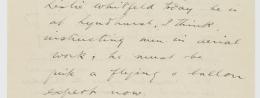 Leslie Whitfeld today he is
at Lyndhurst, I think
instructing men in aerial
work, he must be
quite a flying & balloon
expert now.